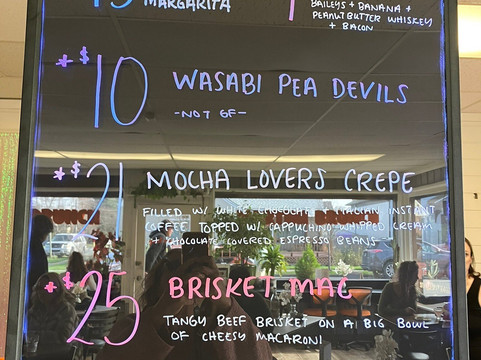 MARGARITA
BAILEYS + BANANA +
PEANUT BUTTER WHISKEY
+ BACON
*$10 WASABI PEA DEVILS
-NOT GF-
*$21 MOCHA LOVERS CREPE
FILLED W/ WHITE CHOCOLATE + ITALIAN INSTANT
COFFEE TOPPED W/ CAPPUCHINO WHIPPED CREAM
+ CHOCOLATE COVERED ESPRESSO BEANS
*$25 BRISKET MAC
TANGY BEEF BRISKET ON A BIG BOWL
OF CHEESY MACARONI